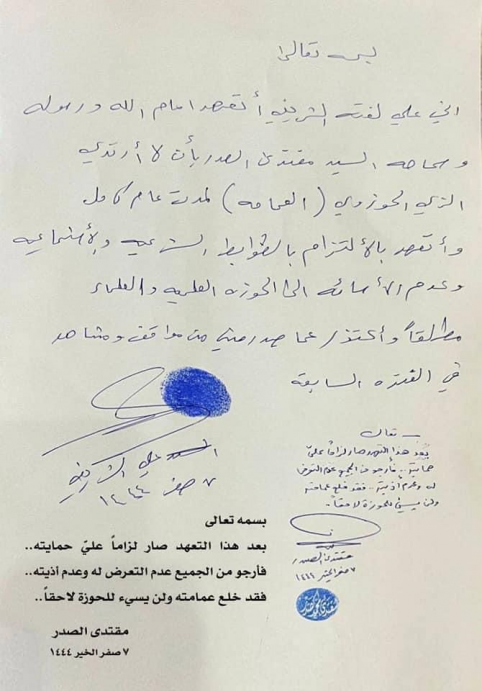 بسمه تعالى
اني علي لفته الشريفي أتعهد امام الله ورسوله
وسماحه السيد مقتدى الصدر بأن لا أرتدي
الزي الحوزوي (العمامه) لمدت عام كامل
وأتعهد بالألتزام بالظوابط الشرعيه والأجتماعيه
وعدم الأسائه الى الحوزه العلميه والعلماء
مطلقاً وأعتذر عما صدر مني من مواقف ومشاهد
في الفتره السابقة
علي الشريفي
٧ صفر ١٤٤٤
تعالى
بعد هذا التعهد صار لزاماً عليّ
حمايته.. فأرجو من الجميع عدم التعرض
له وعدم أذيته.. فقد خلع عمامته
ولن يسيء للحوزة لاحقاً..
مقتدى الصدر
٧ صفر الخير ١٤٤٤
بسمه تعالى
بعد هذا التعهد صار لزاماً عليّ حمايته..
فأرجو من الجميع عدم التعرض له وعدم أذيته..
فقد خلع عمامته ولن يسيء للحوزة لاحقاً..
مقتدى الصدر
٧ صفر الخير ١٤٤٤